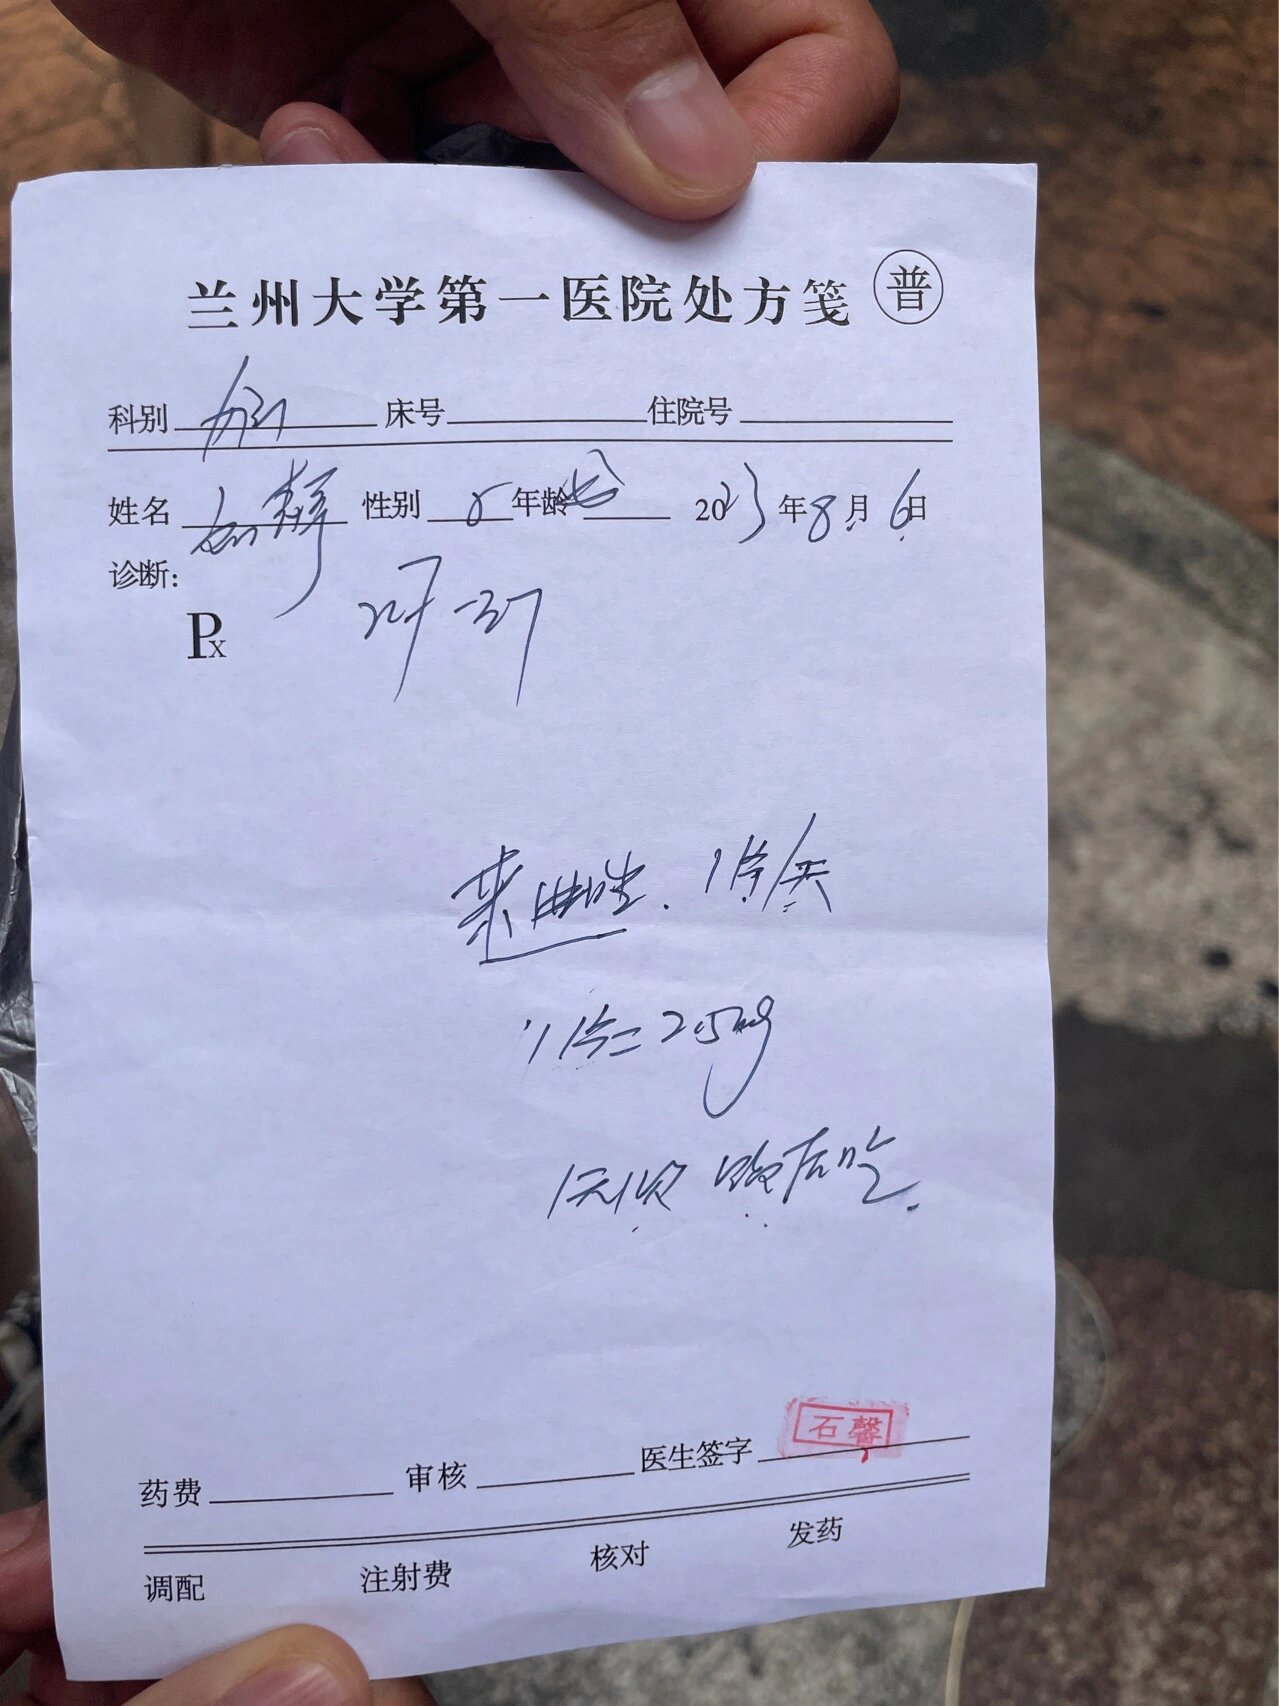 兰州大学第一医院处方笺 普
科别 床号 住院号
姓名 性别 年龄 2023年8月6日
诊断:
Px
来曲唑. 1片/天
1片=2.5mg
1天1次 饭后吃.
药费 审核 医生签字 石馨
调配 注射费 核对 发药